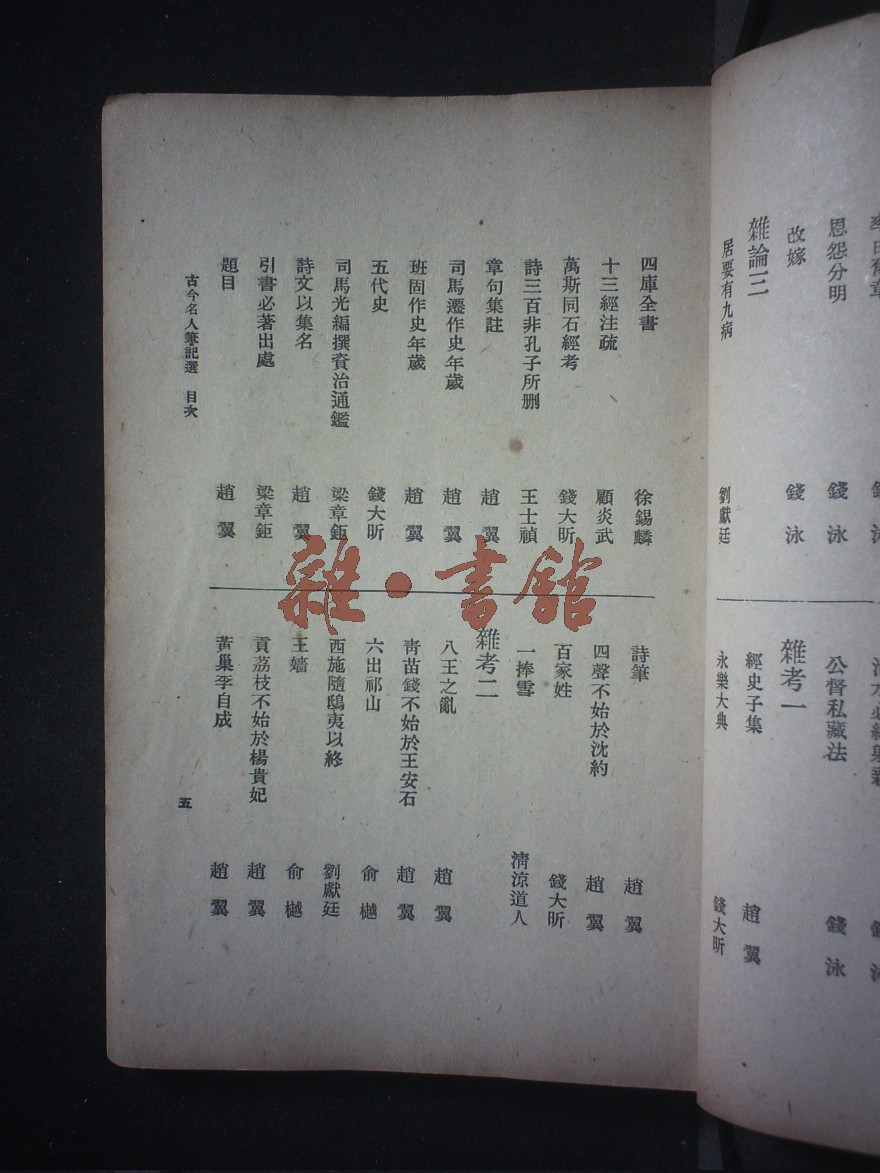 恩怨分明 錢泳
改嫁 錢泳
雜論三
居要有九病 劉獻廷
公督私藏法 錢泳
雜考一
經史子集 趙翼
永樂大典 錢大昕
四庫全書 徐錫麟
十三經注疏 顧炎武
萬斯同石經考 錢大昕
詩三百非孔子所刪 王士禎
章句集註 趙翼
司馬遷作史年歲 趙翼
班固作史年歲 趙翼
五代史 錢大昕
司馬光編撰資治通鑑 梁章鉅
詩文以集名 趙翼
引書必著出處 梁章鉅
題目 趙翼
詩筆 趙翼
四聲不始於沈約 趙翼
百家姓 錢大昕
一捧雪 清涼道人
雜考二
八王之亂 趙翼
青苗錢不始於王安石 趙翼
六出祁山 俞樾
西施隨鴟夷以終 劉獻廷
王嬙 俞樾
貢荔枝不始於楊貴妃 趙翼
黃巢李自成 趙翼
古今名人筆記選 目次
五
雜·書館